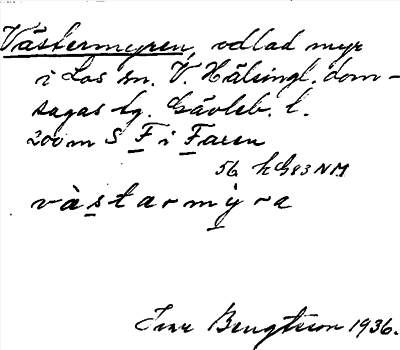 Västermyren, odlad myr
i Los sn. V. Hälsingl. dom-
sagas tg. Gävleb. l.
200 m S F i Faren
56 h G 83 NM
västarmyra
Ivar Bengtsson 1936.